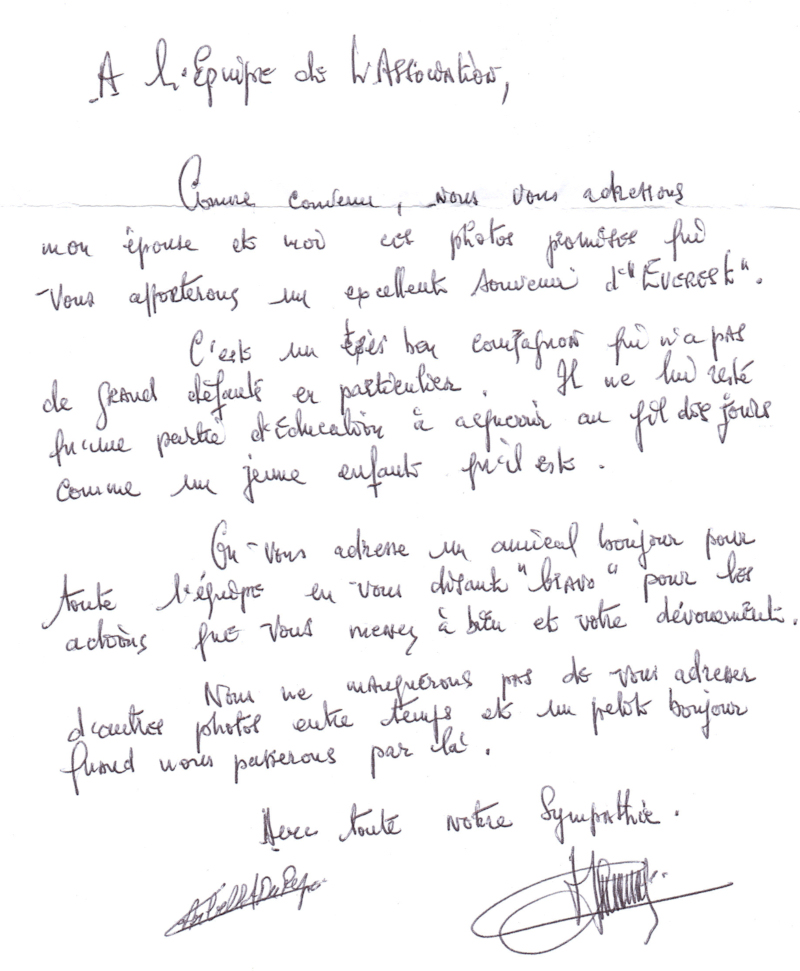 A L'Equipe de L'Association,
Comme convenu, nous vous adressons
mon épouse et moi ces photos promises qui
vous apporterons un excellent souvenir d'"EVEREST".
C'est un très bon compagnon qui n'a pas
de grand défaut en particulier. Il ne lui reste
qu'une partie d'Education à acquerir au fil des jours
comme un jeune enfant qu'il est.
On vous adresse un amical bonjour pour
toute l'équipe en vous disant "bravo" pour les
actions que vous menez à bien et votre dévouement.
Nous ne manquerons pas de vous adresser
d'autres photos entre temps et un petit bonjour
quand nous passerons par là.
Avec toute notre Sympathie.